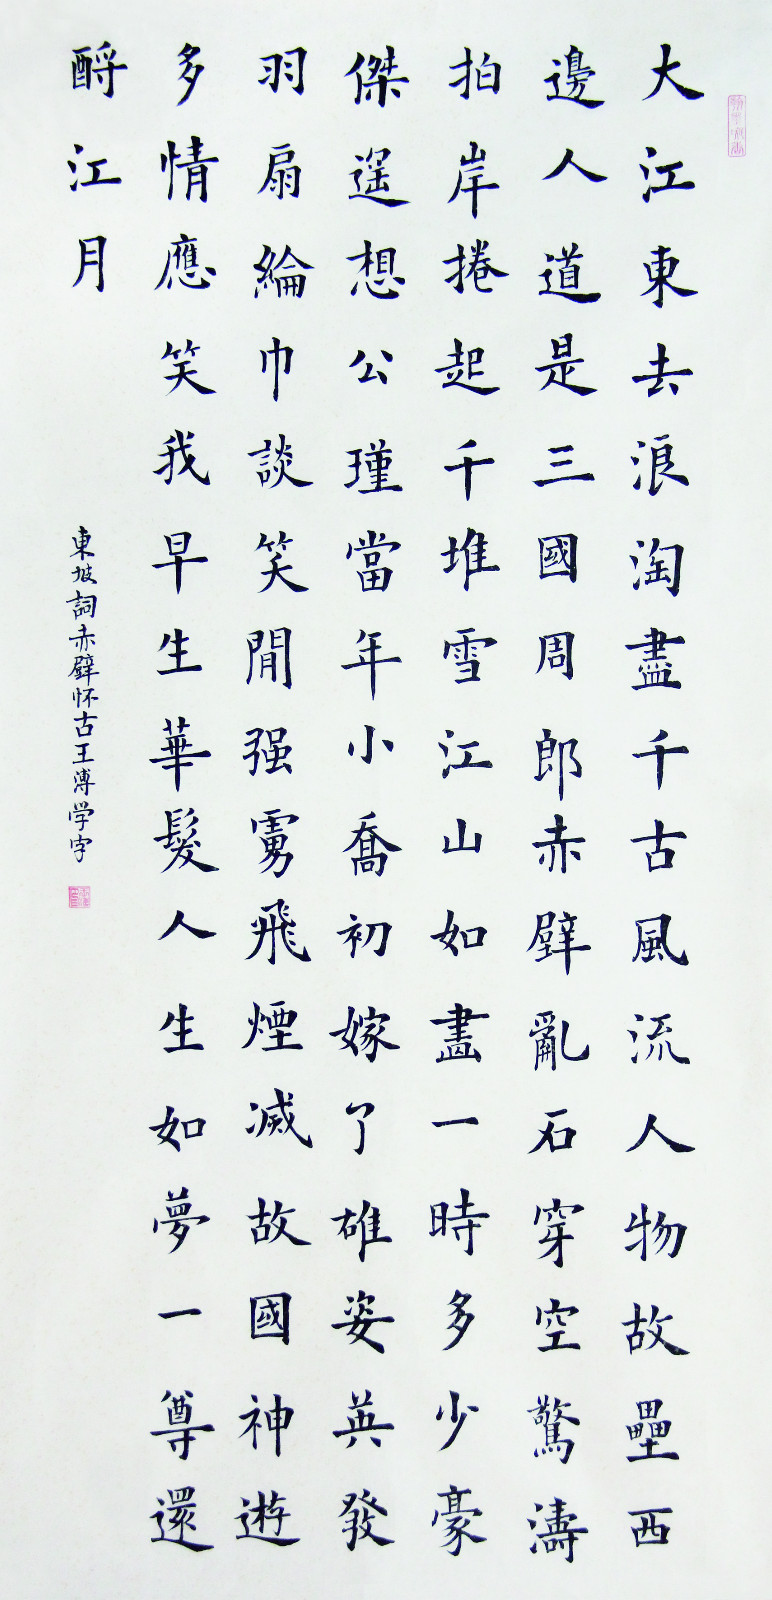 大江東去浪淘盡千古風流人物故壘西
邊人道是三國周郎赤壁亂石穿空驚濤
拍岸捲起千堆雪江山如畫一時多少豪
傑遙想公瑾當年小喬初嫁了雄姿英發
羽扇綸巾談笑閒强虜飛煙滅故國神遊
多情應笑我早生華髮人生如夢一尊還
酹江月
東坡詞赤壁怀古王溥学字